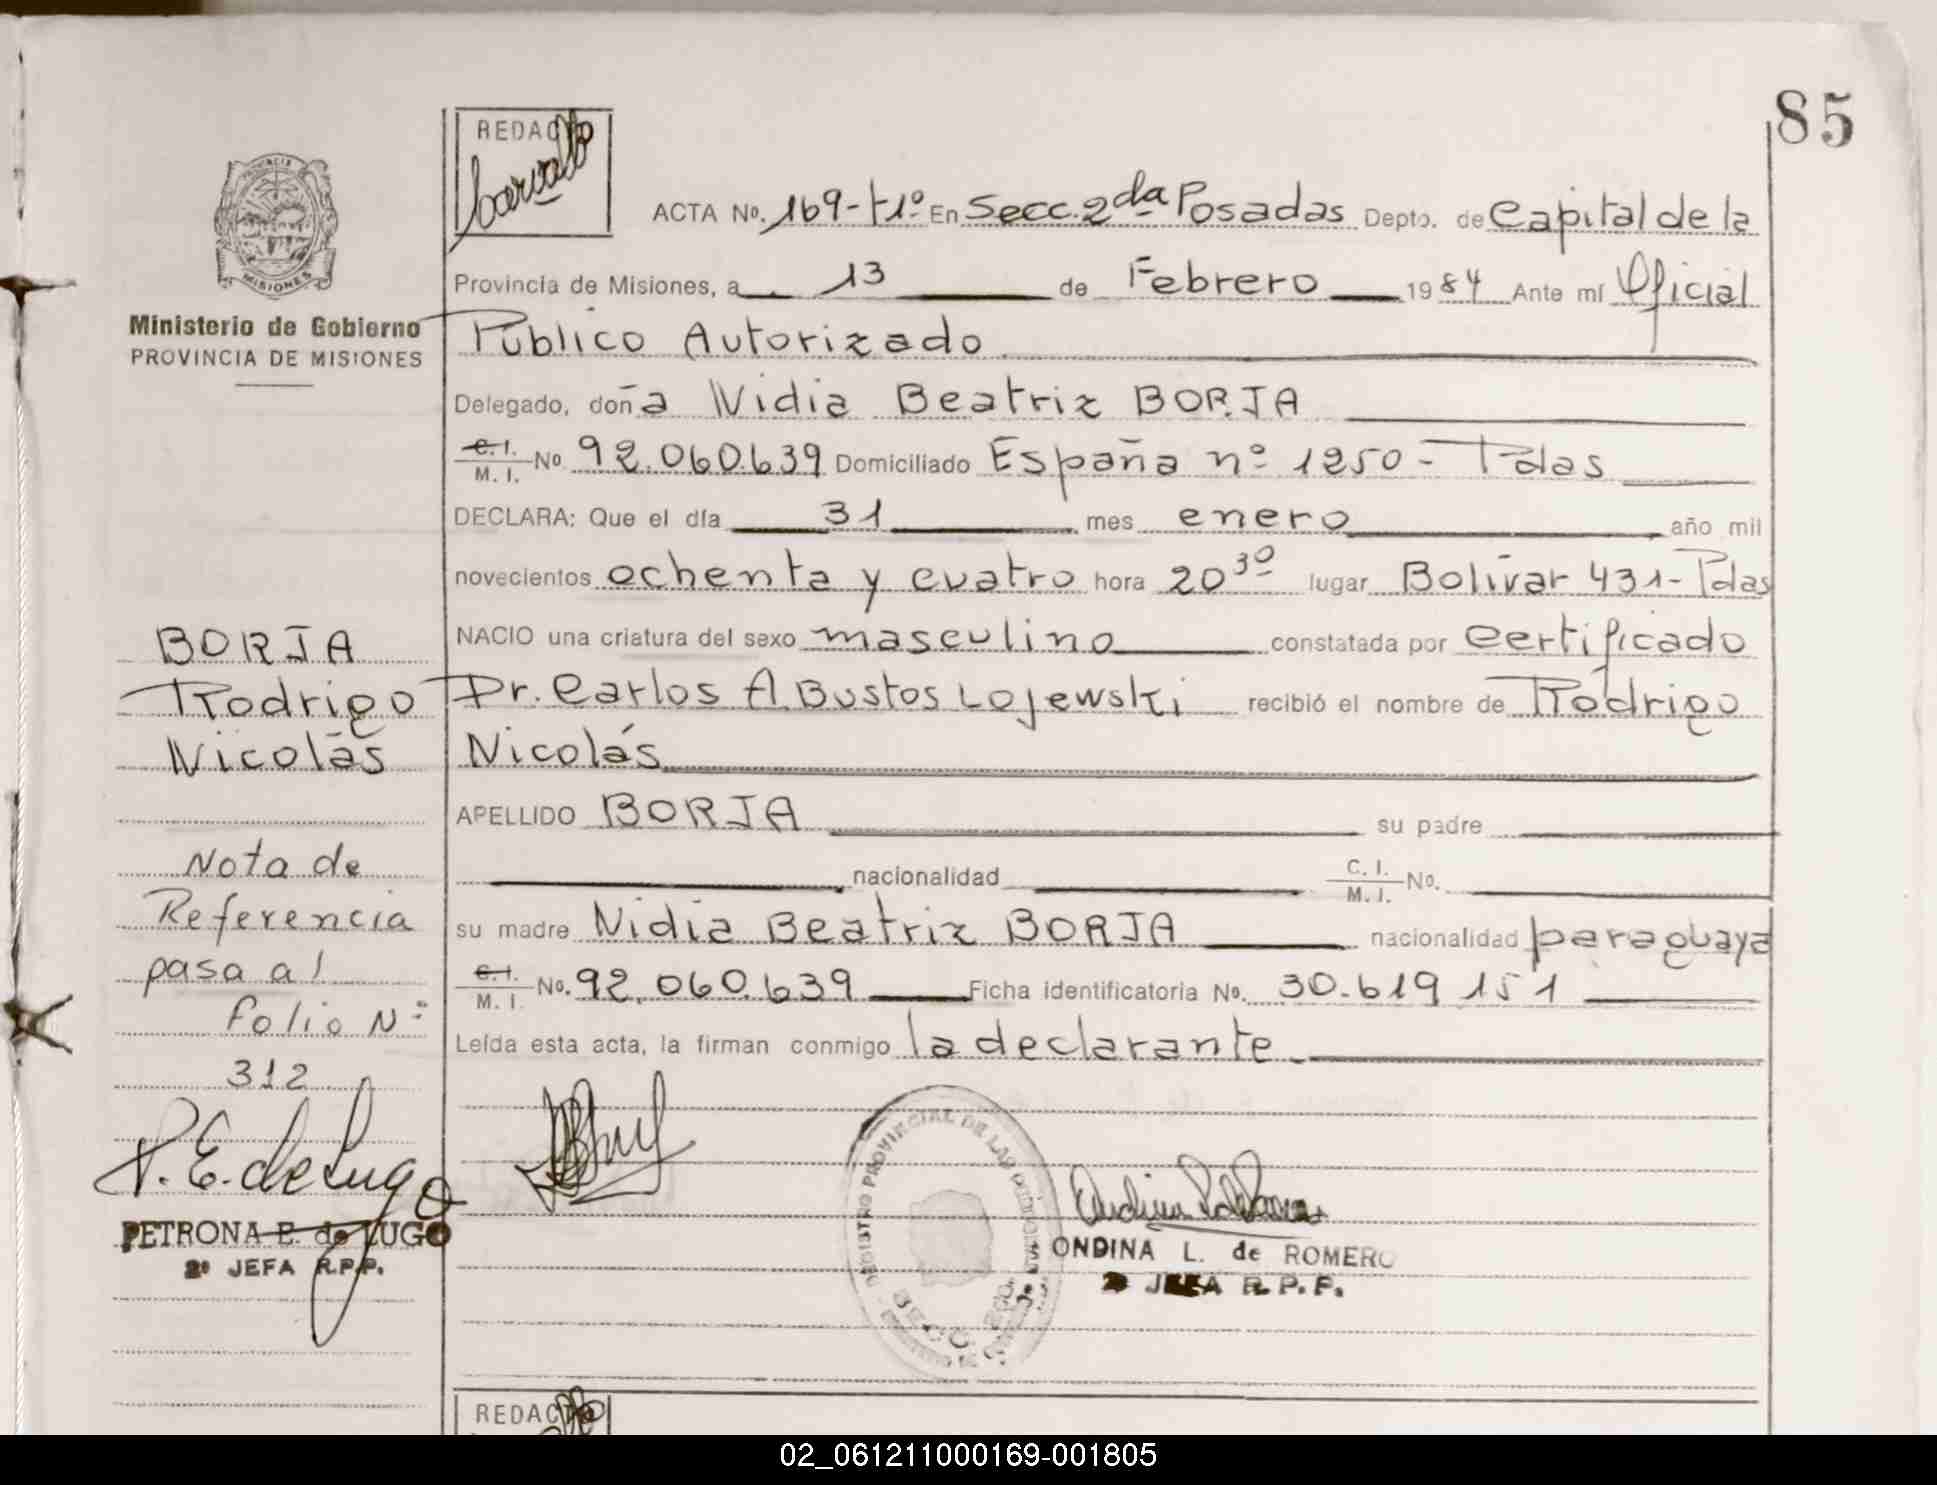 85
REDACTO
ACTA No. 169-t1º En Secc. 2da Posadas Depto. de Capital de la
Provincia de Misiones, a 13 de Febrero 1984 Ante mí Oficial
Público Autorizado
Delegado, doña Nidia Beatriz BORJA
C. I. M. I. No 92.060.639 Domiciliado España nº 1250 - Pdas
DECLARA: Que el día 31 mes enero año mil
novecientos ochenta y cuatro hora 20 30 lugar Bolívar 431 - Pdas
NACIO una criatura del sexo masculino constatada por certificado
Dr. Carlos A. Bustos Lojewski recibió el nombre de Rodrigo
Nicolás
APELLIDO BORJA su padre
nacionalidad C. I. M. I. No.
su madre Nidia Beatriz BORJA nacionalidad paraguaya
C. I. M. I. No. 92.060.639 Ficha identificatoria No. 30.619 151
Leída esta acta, la firman conmigo la declarante
PROVINCIA
MISIONES
Ministerio de Gobierno
PROVINCIA DE MISIONES
BORJA
Rodrigo
Nicolás
Nota de
Referencia
pasa al
folio Nº
312
P. E. de Lugo
PETRONA E. de LUGO
2º JEFA R.P.P.
REGISTRO PROVINCIAL DE LAS PERSONAS
ONDINA L. de ROMERO
JEFA R. P. P.
REDACTO
02_061211000169-001805